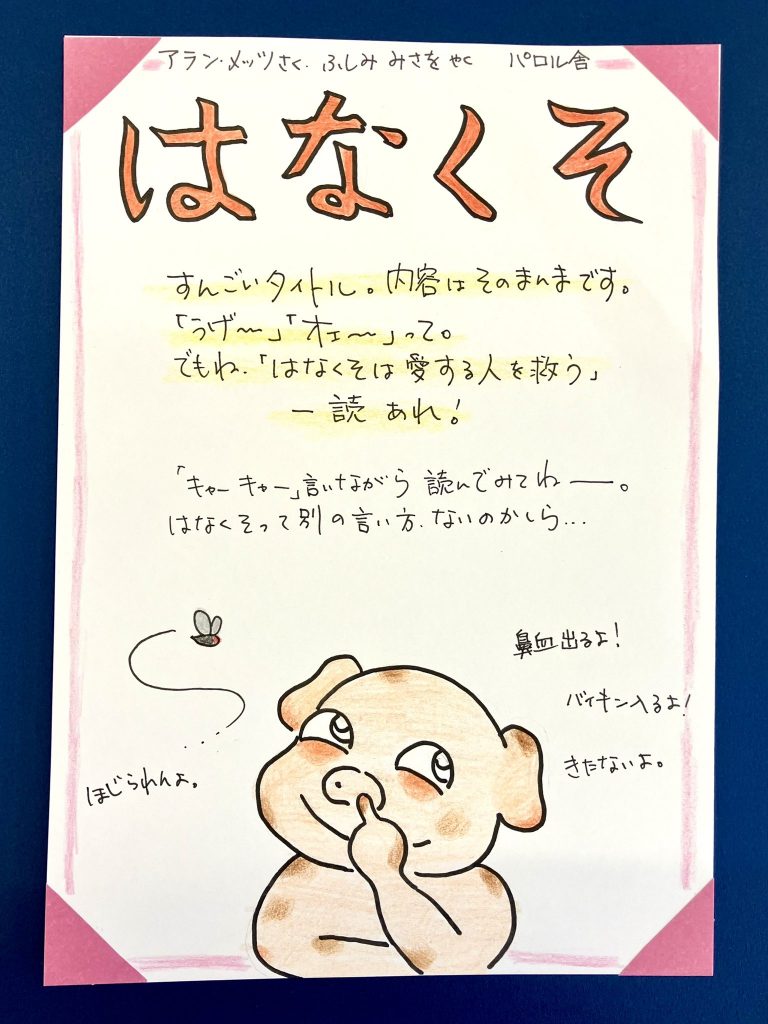 アラン・メッツさく. ふしみ みさを やく パロル舎
はなくそ
すんごいタイトル。内容はそのまんまです。
「うげ〜」「オエ〜」って。
でもね、「はなくそは愛する人を救う」
一読 あれ!
「キャーキャー」言いながら 読んでみてねー。
はなくそって別の言い方、ないのかしら...
鼻血出るよ!
バイキン入るよ!
きたないよ。
ほじられんよ。